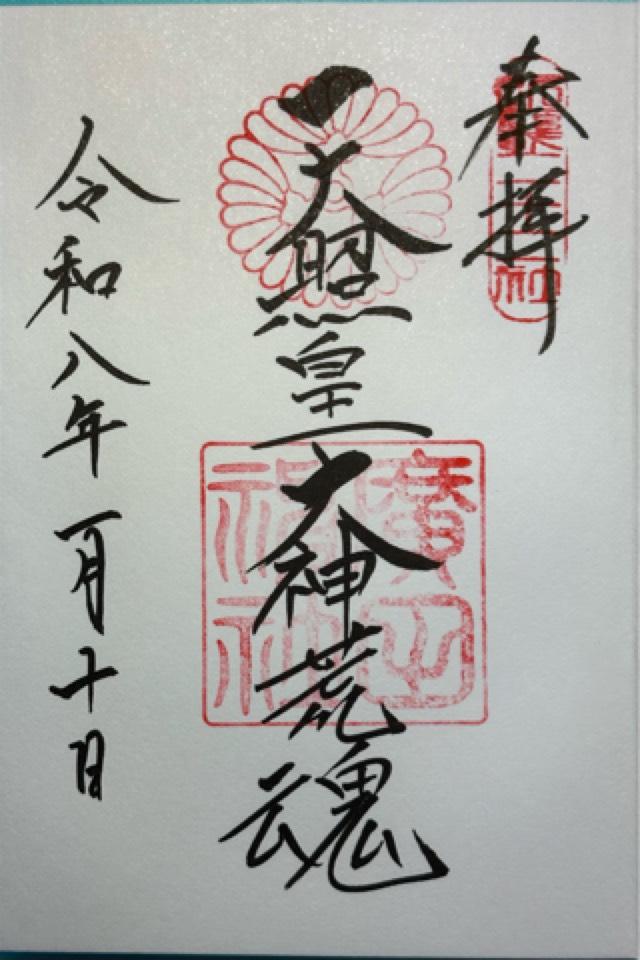 奉拝
天照皇大神荒魂
廣田
令和八年一月十日